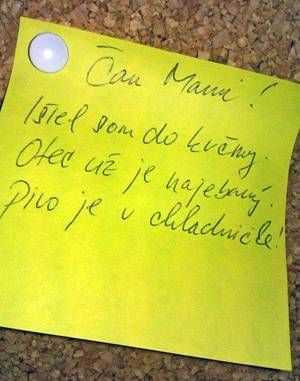 Čau Mami!
Išiel som do krčmy.
Otec už je najebaný.
Pivo je v chladničke!